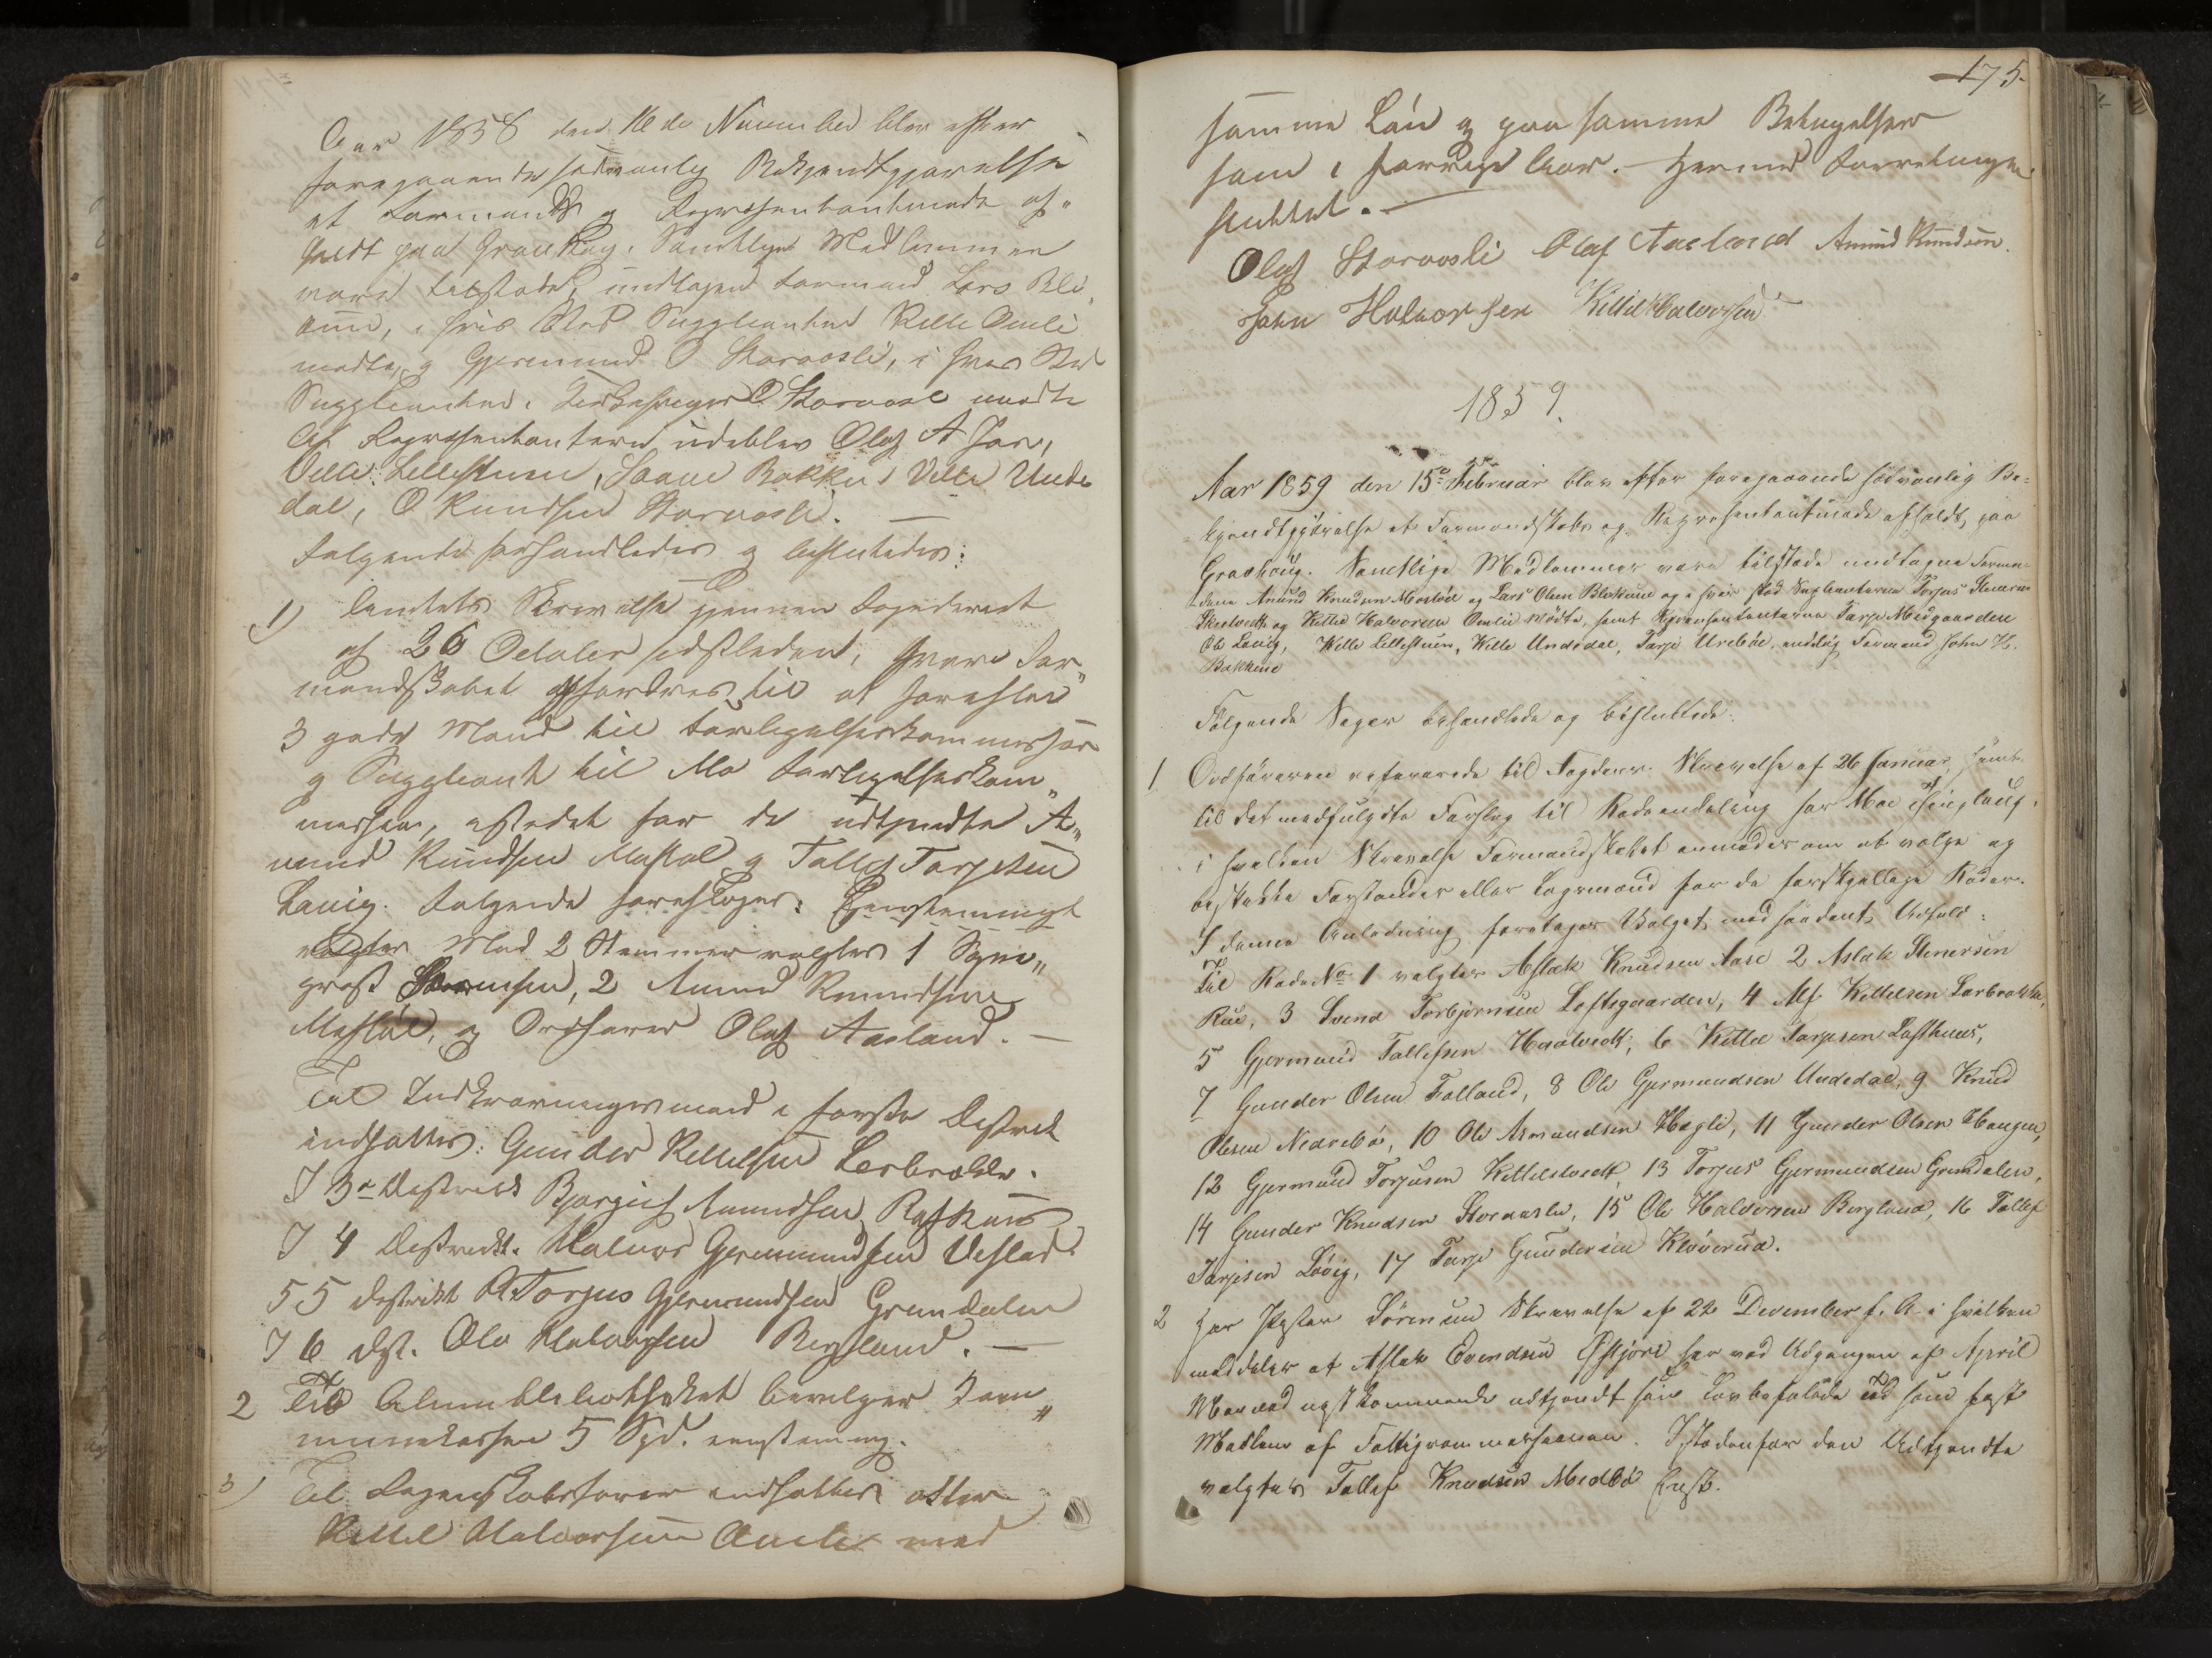 Aar 1858 den 16de November blev efter
foregaaende sædvanlig Bekjendtgjørelse
et Formands og Repræsentantmøde af„
holdt paa Graahaug. Samtlige Medlemmer
vare tilstæde, undtagen Formand Lars
i hvis Sted Suppleanten Kittil Omli
mødte, og Gjermund O Storaasli, i hvis Sted
Suppleanten, O. Storaasl mødte
Af Repræsentanterne udeblev Olaf A
Vetle Lillestuen, Bakken, Vetle Unde
dal, O Knudsen Storaasli. —
Følgende forhandledes og besluttedes:
1) Amtets Skrivelse gjennem Fogderiet
af 26 October sidstleden, hvori For„
mandskabet opfordres til at foreslaa
3 gode Mænd til Forligelseskommissær
og Suppleant til Mo Forligelseskom„
mission, istedet for de udtjente A„
mund Knudsen Mostøl og Tallef Tarjesen
Løvig. Følgende foreslages: Eenstemmigt
valgtes Med 2 Stemmer valgtes 1 Sogne„
præst Sørensen, 2 Anund Knudsen
Mostøl, og Ordfører Olaf Aasland. —
Til Indkrævningsmænd i første Distrik
indsattes: Gunder Kittilsen Lerbrække.
I 3e Distrikt Bjørgulf Aanundsen
I 4 Distrikt. Halvor Gjermundsen
I 5 Distrikt Torjus Gjermundsen Grundalen
I 6 Dist. Ole Halvorsen Bergland. —
2 Til Almuebibliotheket bevilges Kom„
munekassen 5 Spd. eenstemmig.
3) Til Regnskabsfører indsattes atter
Kittil Halvorsen Omli med
175.
samme Løn og paa samme Betingelser
som i forrige Aar. — Hermed Forretningen
sluttet. —
Olaf Storaasli Olaf Aasland Anund Knudsen.
John Halvorsen Kittil Halvorsen
1859.
Aar 1859 den 15de Februar blev efter foregaaende sædvanlig Be=
kjendtgjørelse et Formandskabs og Repræsentantmøde afholdt, paa
Graahoug. Samtlige Medlemmer vare tilstæde undtagne Forman=
dene Anund Knudsen Mostøl og Lars Olsen og i hvis sted Suplanterne Torjus Stenersen
og Kittil Halvorsen Omlie mødte, samt Repræsentanterne Tarje Midgaarden
Ole Løvig, Wetle Lillestuen, Wetle Undedal, Tarje Urebøe, endelig Formand John H.
Bakkene
Følgende Sager behandlede og besluttede:
1 Ordføreren refererede til Fogdens Skrivelse af 26 Januar, samt
til det medfulgdte Forslag til Rodeinddeling for Moe Thinglaug,
i hvilken Skrivelse Formandskabet anmodes om at vælge og
beskikke Forstander eller Lagsmænd for de forskjellige Roder.
I denne Anledning foretages Valget med saadant Udfald:
Til Rode No 1 valgtes Aslak Knudsen Aase 2 Aslak Stenersen
Rue, 3 Svend Torbjørnsen Loftsgaarden, 4 Alf Kittilsen Lærbrække,
5 Gjermund Tallefsen, 6 Kittil Tarjesen Lofthuus,
7 Gunder Olsen Folland, 8 Ole Gjermundsen Undedal, 9 Knud
Olsen Nedrebø, 10 Ole Asmundsen Hægli, 11 Gunder Olsen Haugen,
12 Gjermund Torjusen Kittilstvedt, 13 Torjus Gjermundsen Grundalen,
14 Gunder Knudsen Storaasli, 15 Ole Halvorsen Bergland, 16 Tallef
Tarjesen Løvig, 17 Tarje Gundersen Kløverud.
2 Herr Pastor Sørensens Skrivelse af 22 December f. A. i hvilken
meddeles at Aslak Evendsen har ved Udgangen af April
Maaned næstkommende udtjendt sin Lovbefalede Tid som fast
Medlem af Fattigcommissionen. Istedenfor den Udtjendte
valgtes Tallef Knudsen Midbø